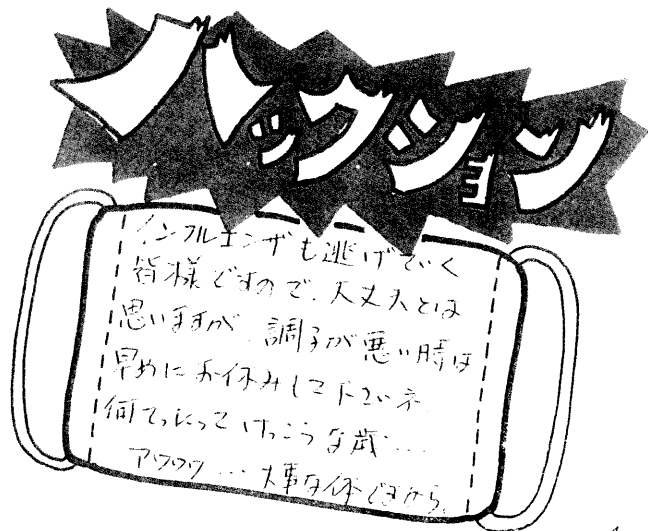 ハックション
インフルエンザも逃げていく
皆様ですので、大丈夫とは
思いますが、調子が悪い時は
早めにお休みして下さいネ
何てったって けっこうな歳……
アワワワ…大事な体ですから。